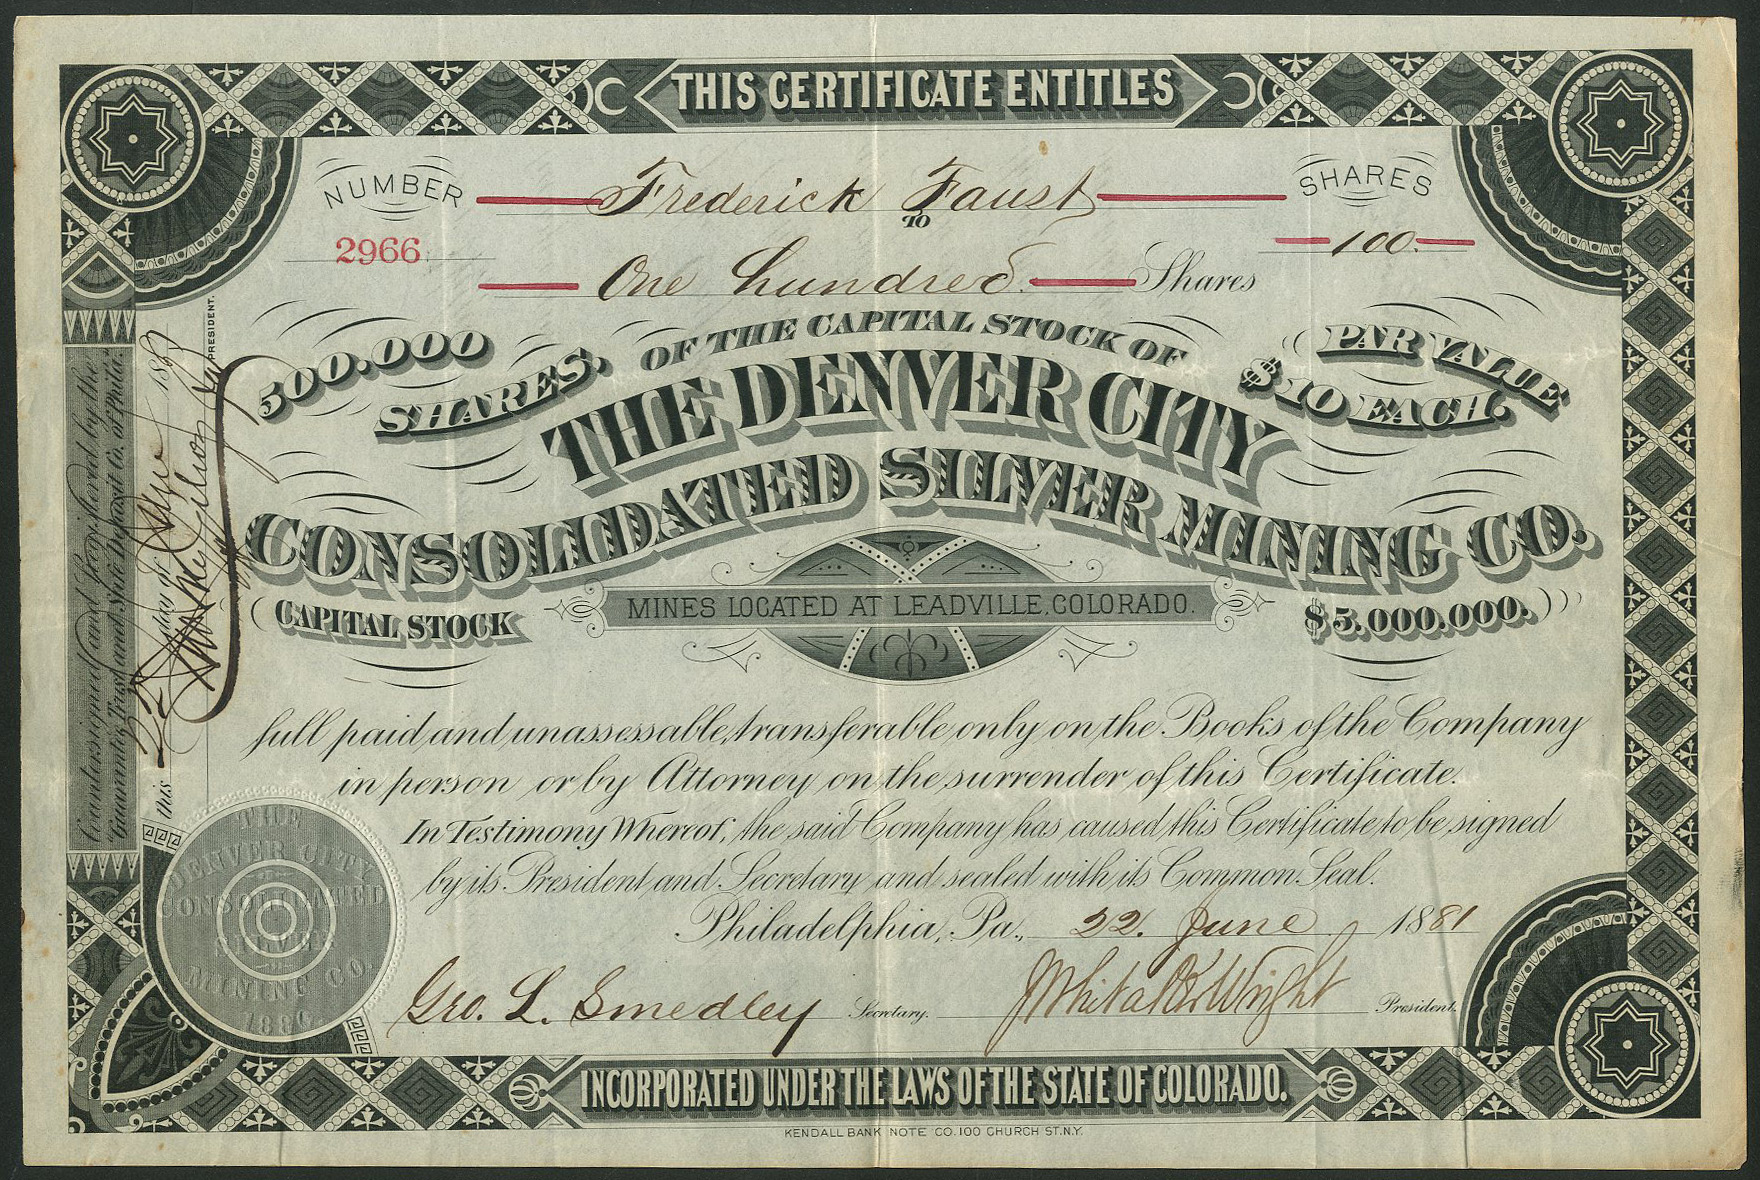 THIS CERTIFICATE ENTITLES
NUMBER
Frederick Faust
SHARES
TO
2966
100
One hundred Shares
OF THE CAPITAL STOCK OF
500.000
SHARES.
PAR VALUE
$10 EACH.
THE DENVER CITY
CONSOLIDATED SILVER MINING CO.
CAPITAL STOCK
MINES LOCATED AT LEADVILLE, COLORADO.
$5.000.000.
full paid and unassessable, transferable only on the Books of the Company
in person or by Attorney on the surrender of this Certificate.
In Testimony Whereof, the said Company has caused this Certificate to be signed
by its President and Secretary and sealed with its Common Seal.
Philadelphia, Pa., 22. June 1881
Geo. L. Smedley Secretary.
President.
INCORPORATED UNDER THE LAWS OF THE STATE OF COLORADO.
KENDALL BANK NOTE CO. 100 CHURCH ST. N.Y.
Countersigned and Registered by the
Guarantee Trust and Safe Deposit Co. of Phila.
this 22 day of June 188
PRESIDENT.
THE
DENVER CITY
CONSOLIDATED
SILVER
MINING CO.